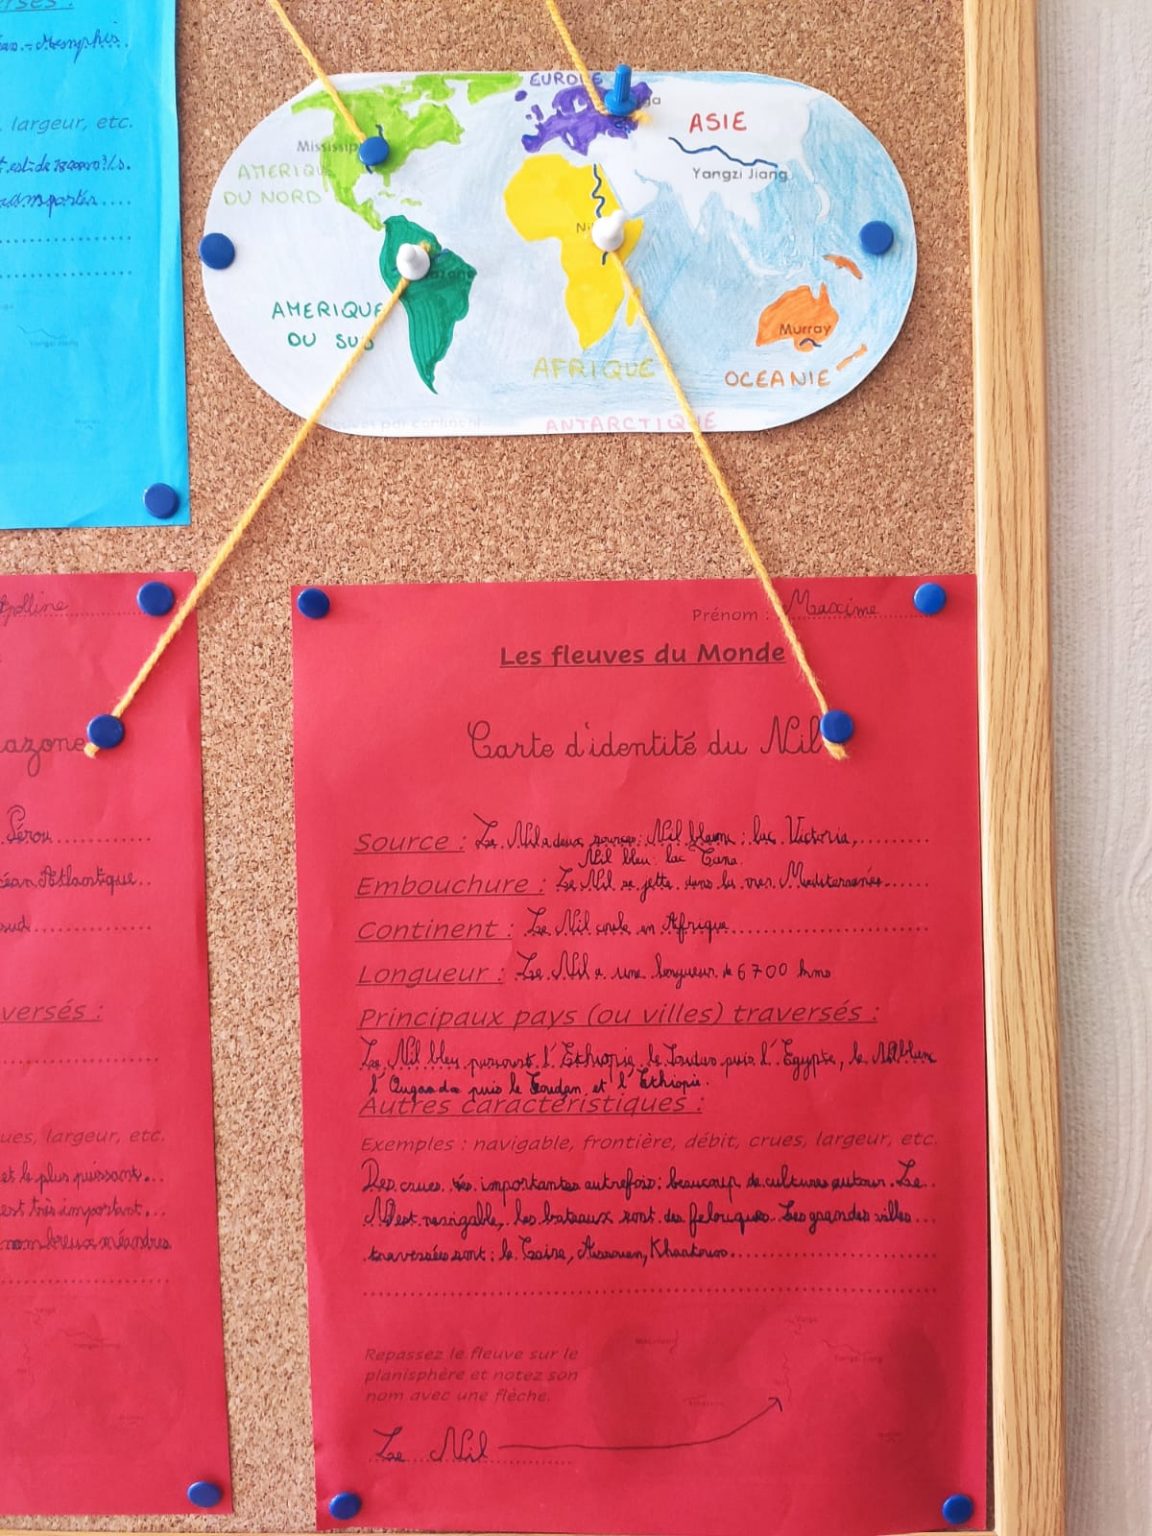 Memphis.
largeur, etc.
EUROPE
ASIE
Mississip
AMERIQUE
DU NORD
Yangzi Jiang
Ni
AMERIQUE
DU SUD
Murray
AFRIQUE
OCEANIE
ANTARCTIQUE
par continent
Prénom : Maxime
Les fleuves du Monde
Carte d'identité du Nil
Source : Le Nil a deux sources: Nil blanc : lac Victoria,
Nil bleu: lac Tana.
Embouchure : Le Nil se jette dans la mer Méditerranée
Continent : Le Nil coule en Afrique
Longueur : Le Nil a une longueur de 6700 kms
Principaux pays (ou villes) traversés :
Le Nil bleu parcourt l'Ethiopie, le Soudan puis l'Egypte, le Nil blanc
l'Ouganda puis le Soudan et l'Ethiopie.
Autres caractéristiques :
Exemples : navigable, frontière, débit, crues, largeur, etc.
Des crues très importantes autrefois: beaucoup de cultures autour. Le
Nil est navigable, les bateaux sont des felouques. Les grandes villes
traversées sont: le Caire, Assouan, Khartoum
Repassez le fleuve sur le
planisphère et notez son
nom avec une flèche.
Le Nil
Apolline
azone
Pérou
éan Atlantique
sud
versés :
ues, largeur, etc.
et le plus puissant.
est très important.
nombreux méandres